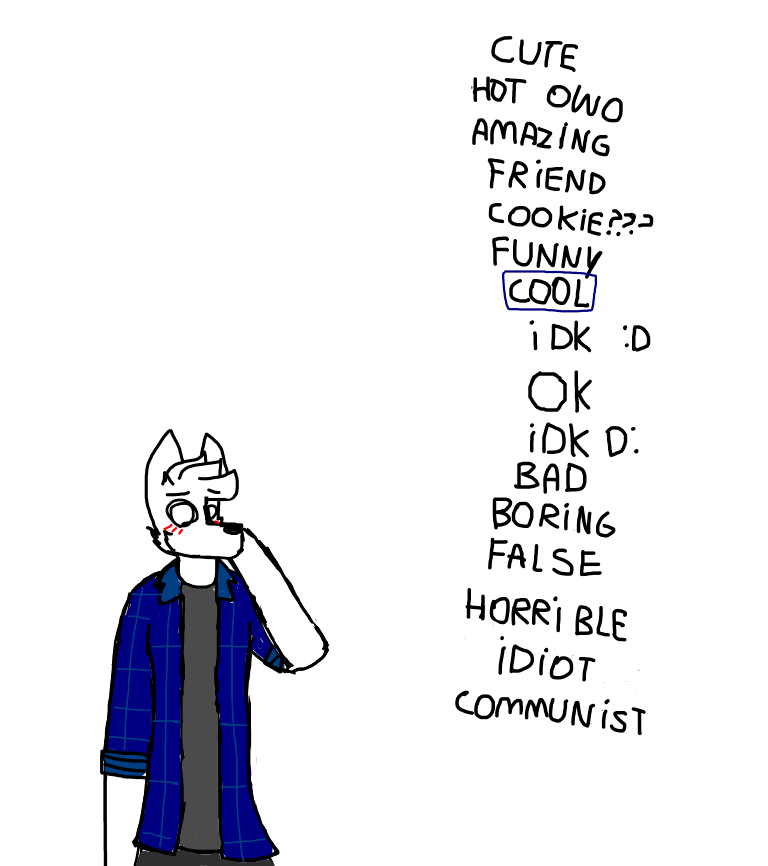 CUTE
HOT OWO
AMAZiNG
FRiEND
COOKiE???
FUNNY
COOL
iDK :D
OK
iDK D:
BAD
BORiNG
FALSE
HORRiBLE
iDiOT
COMMUNiST